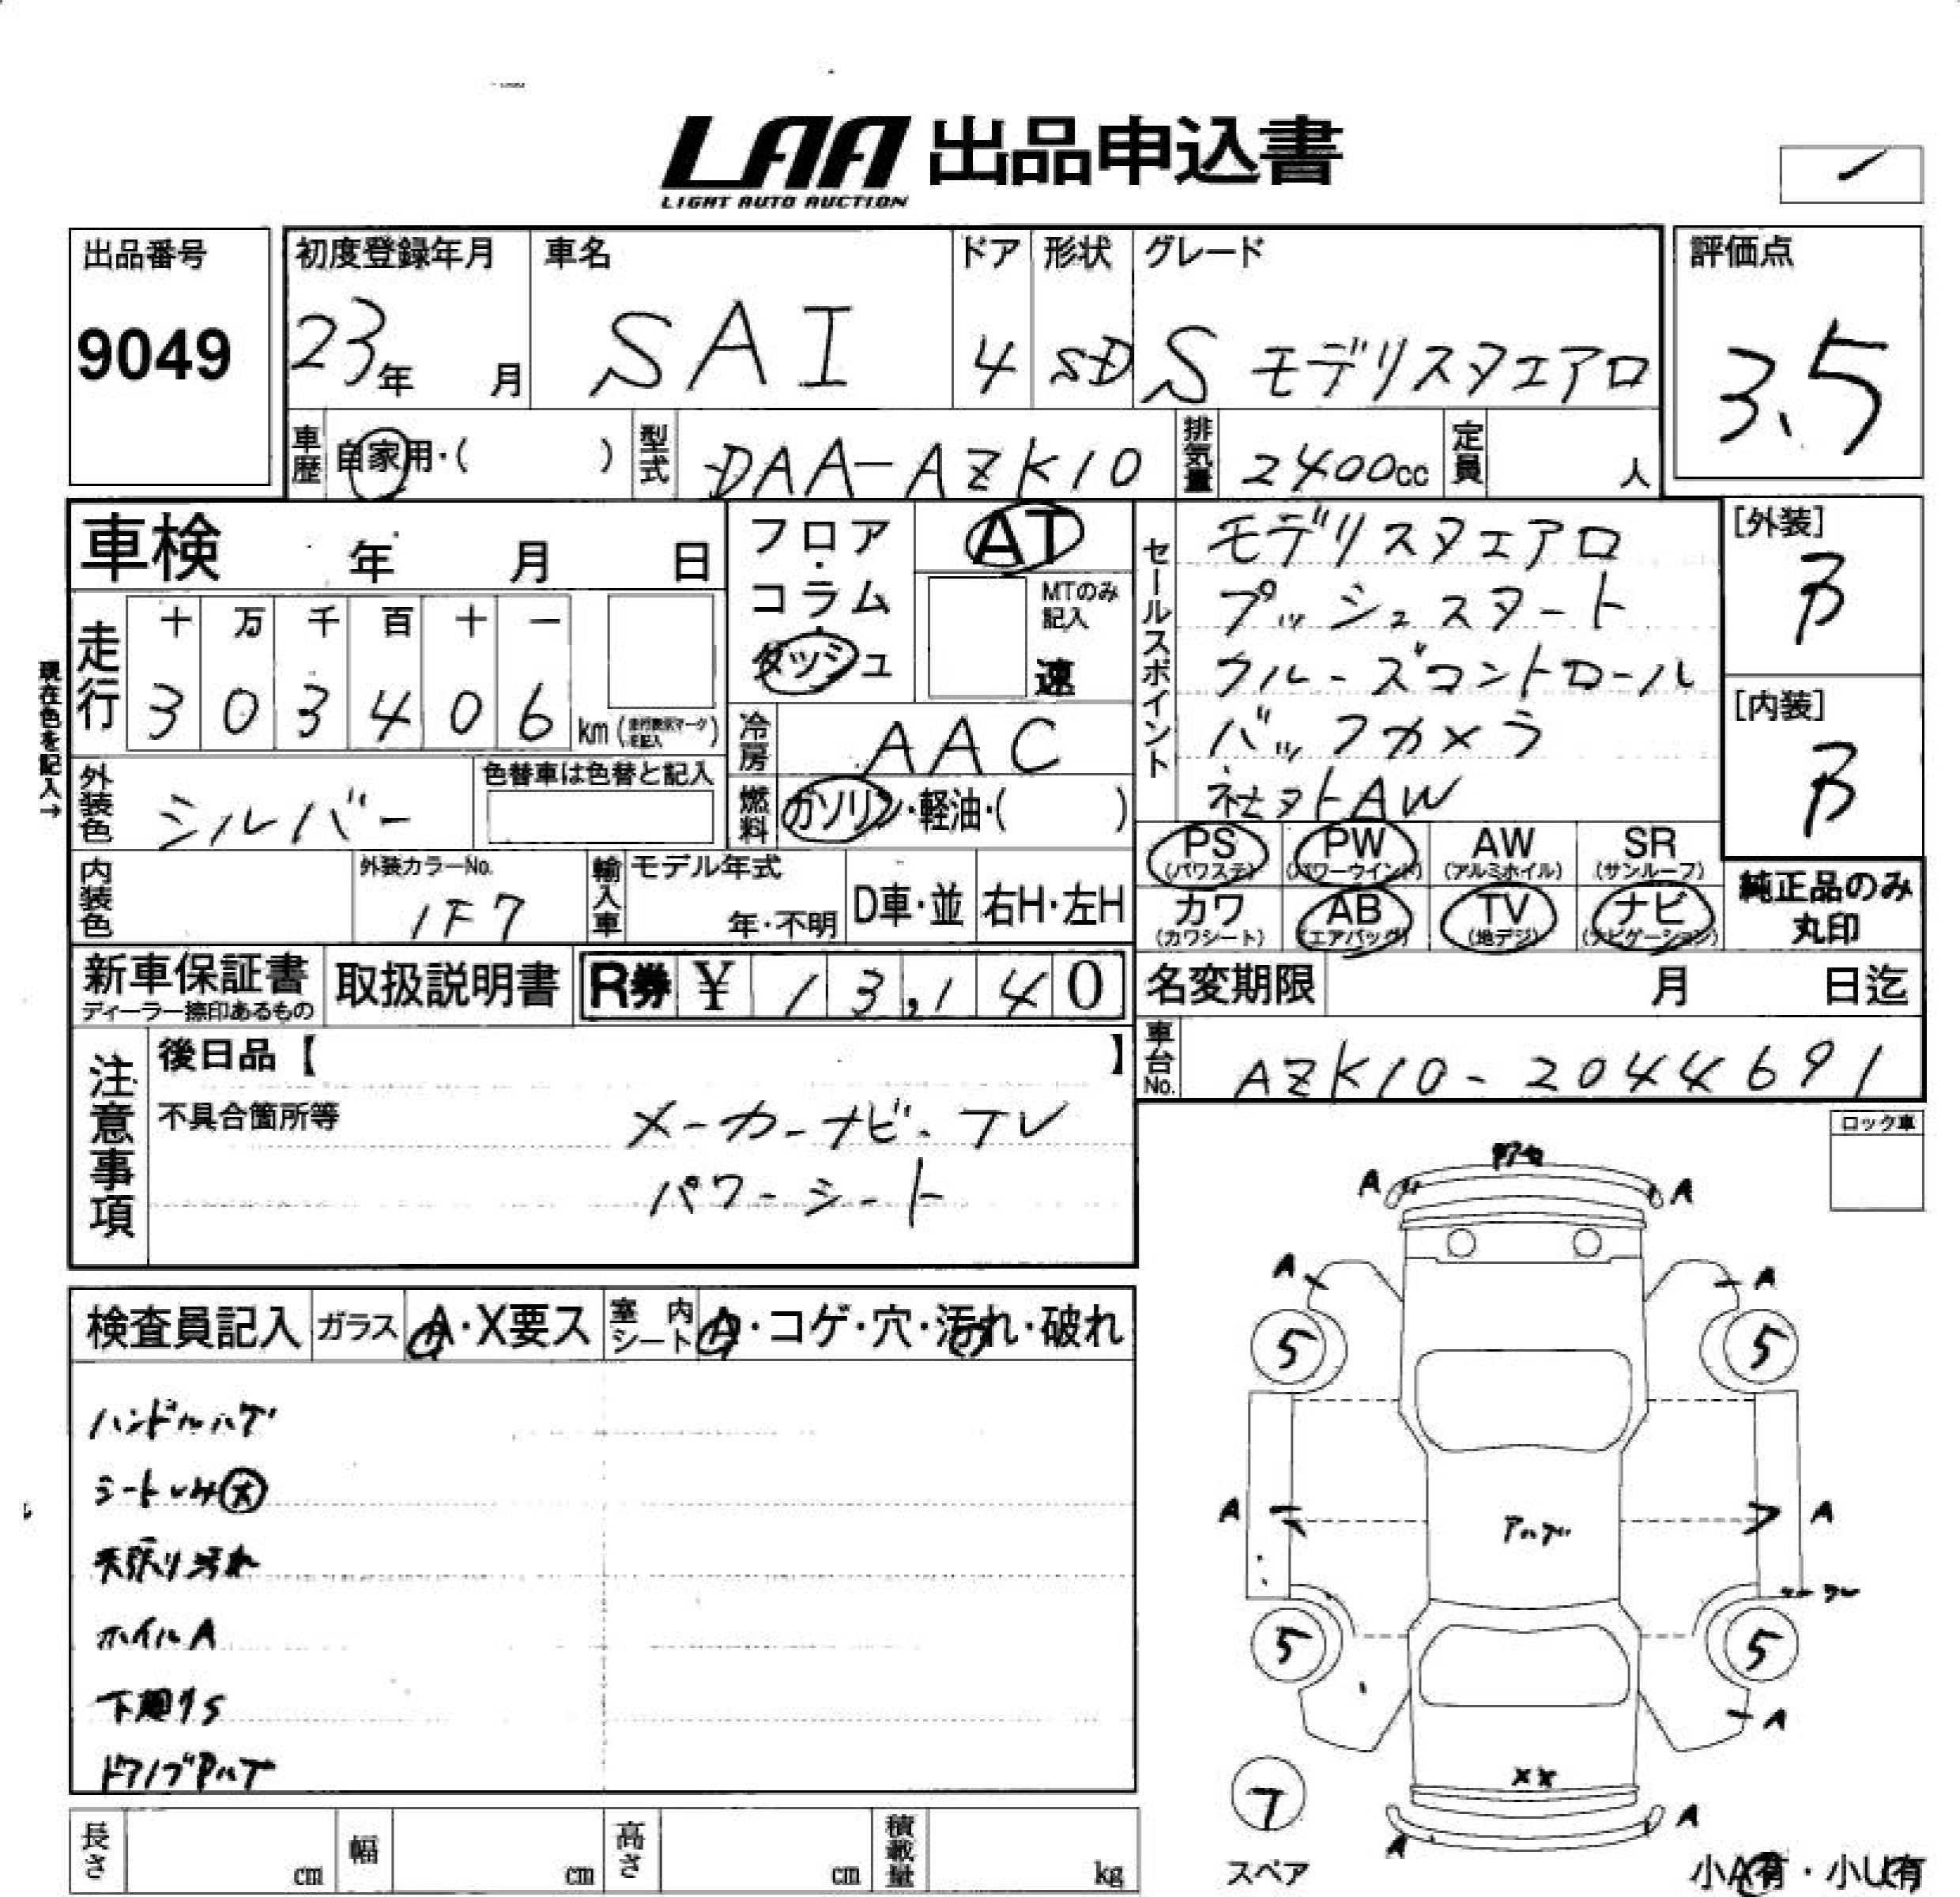 LAA 出品申込書
LIGHT AUTO AUCTION
出品番号
9049
初度登録年月
23年 月
車名
SAI
ドア
4
形状
SD
グレード
S モデリスタエアロ
評価点
3.5
車歴 自家用・( )
型式 DAA-AZK10
排気量 2400cc
定員 人
車検 年 月 日
フロア・コラム・ダッシュ
AT
MTのみ記入
速
現在色を記入→
走行
十 万 千 百 十 一
3 0 3 4 0 6 km
冷房 AAC
外装色 シルバー
色替車は色替と記入
燃料 ガソリン・軽油・( )
内装色
外装カラーNo.
1F7
輸入車
モデル年式
年・不明
D車・並
右H・左H
セールスポイント
モデリスタエアロ
プッシュスタート
クルーズコントロール
バックカメラ
社外AW
[外装]
B
[内装]
B
PS (パワステ)
PW (パワーウインド)
AW (アルミホイル)
SR (サンルーフ)
カワ (カワシート)
AB (エアバッグ)
TV (地デジ)
ナビ (ナビゲーション)
純正品のみ
丸印
新車保証書
ディーラー捺印あるもの
取扱説明書
R券 ¥ 13,140
名変期限 月 日迄
車台No. AZK10-2044691
注意事項
後日品【 】
不具合箇所等
メーカーナビ・TV
パワーシート
ロック車
検査員記入
ガラス A・X要ス
室内シート A・コゲ・穴・汚れ・破れ
ハンドルハゲ
シートシミ大
天張り汚れ
ホイルA
下廻りS
A
A
A
A
5
5
A
A
5
5
A
XX
A
A
スペア
小A有・小U有
長さ cm
幅 cm
高さ cm
積載量 kg